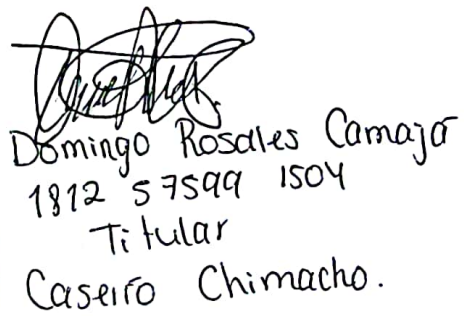 Domingo Rosales Camajá
1812 57599 1504
Titular
Caserío Chimacho.